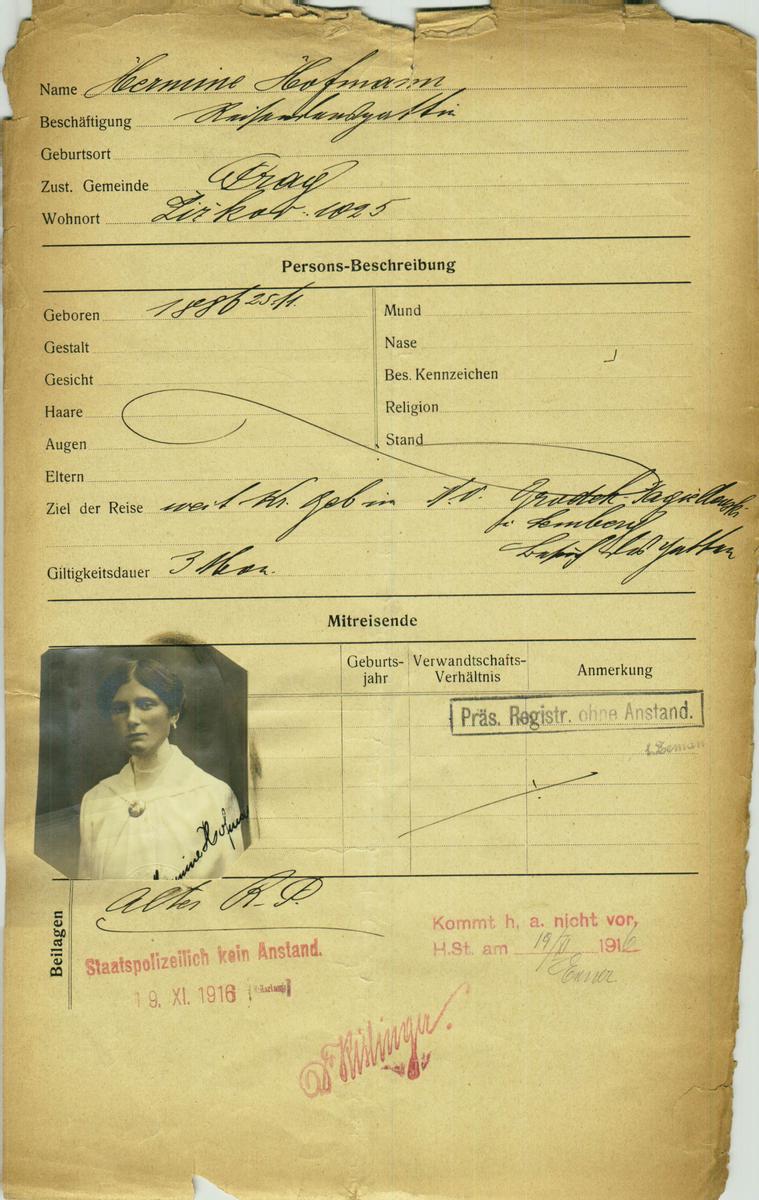 Name Hermine Hofmann
Beschäftigung Reisendensgattin
Geburtsort
Zust. Gemeinde Prag
Wohnort Žižkov 1025
Persons-Beschreibung
Geboren 1886 25./11.
Gestalt
Gesicht
Haare
Augen
Eltern
Mund
Nase
Bes. Kennzeichen
Religion
Stand
Ziel der Reise Grodek-Jagiellonski
Lemberg
Besuch des Gatten
Giltigkeitsdauer 3 Mon.
Mitreisende
Geburts-
jahr
Verwandtschafts-
Verhältnis
Anmerkung
Präs. Registr. ohne Anstand.
Zeman
Hermine Hofma
Beilagen
Alter R. P.
Staatspolizeilich kein Anstand.
19. XI. 1916
Kommt h. a. nicht vor,
H.St. am 19/XI 1916